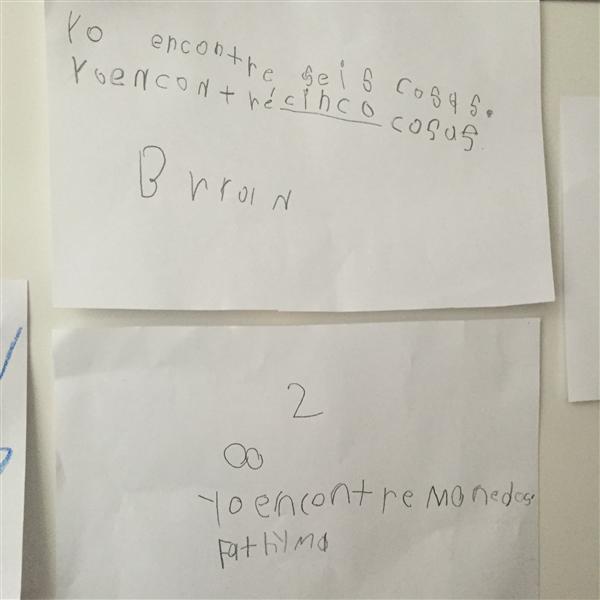 Yo encontre seis cosas.
Yo encontré cinco cosas.
Brroin
2
Yo encontre monedas
Fathyma